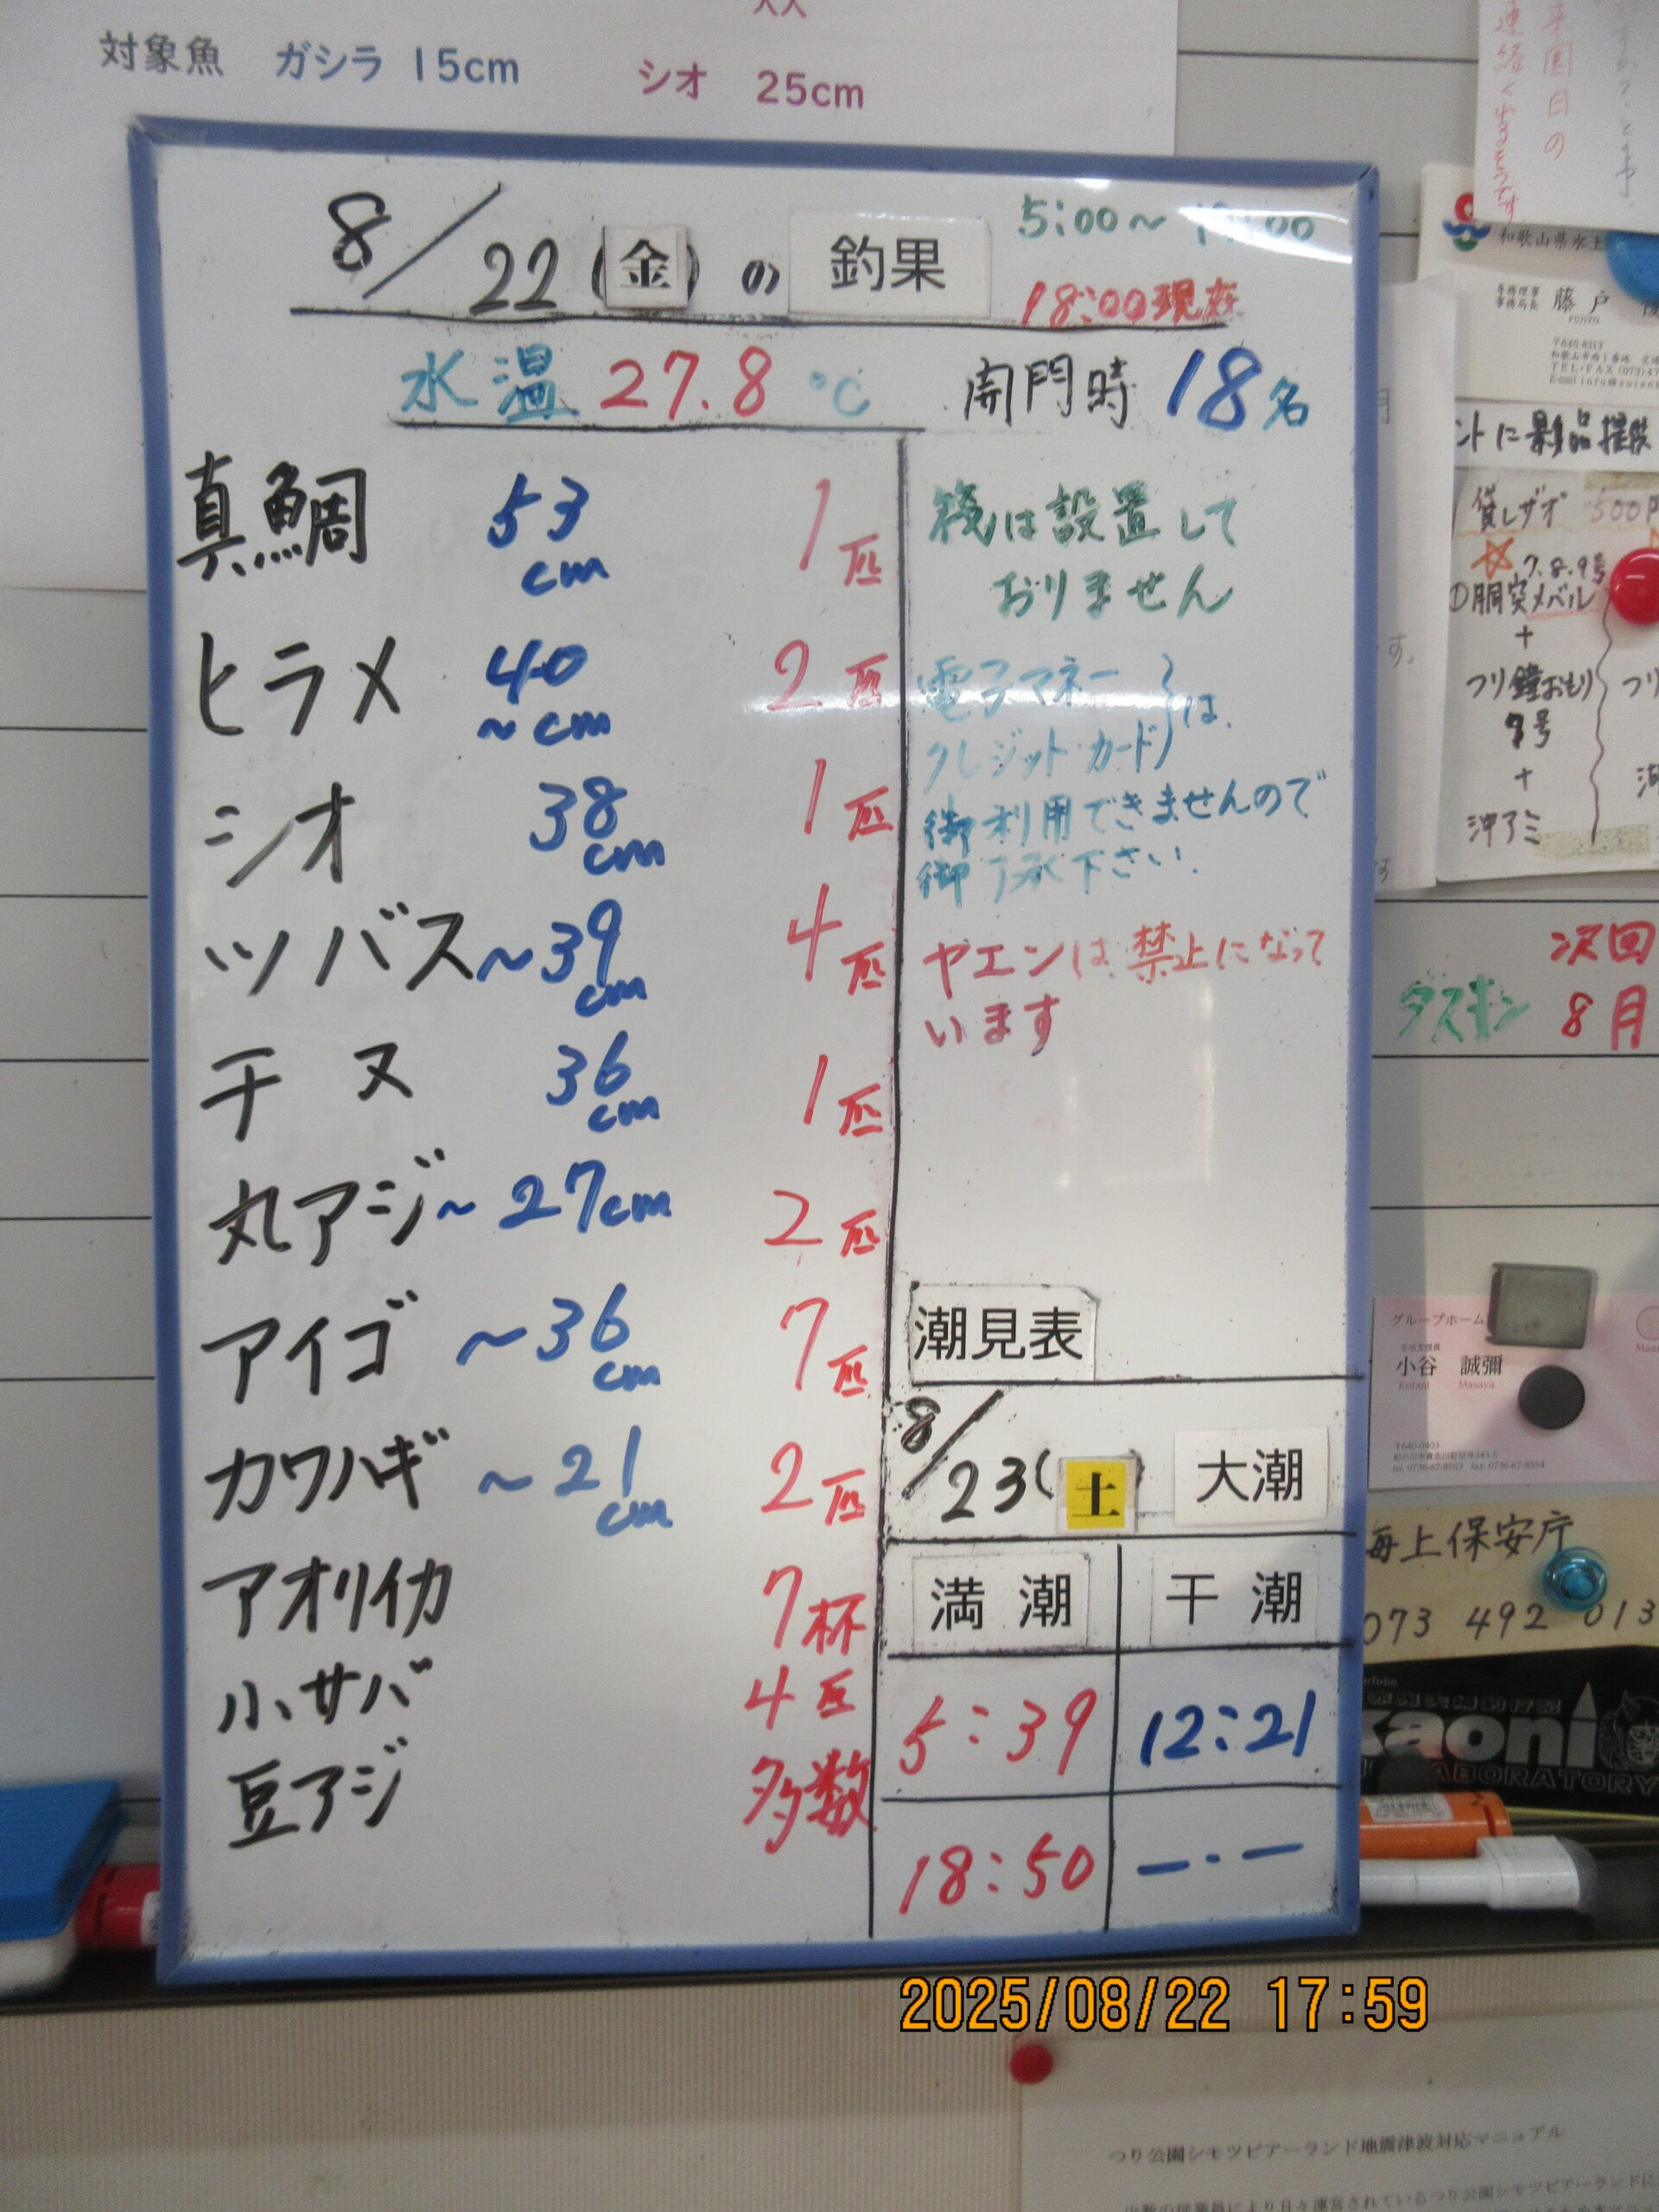 対象魚 ガシラ 15cm
シオ 25cm
8/22(金)の 釣果
5:00～
18:00現在
水温 27.8℃
開門時 18名
真鯛 53cm 1匹
ヒラメ 40～cm 2匹
シオ 38cm 1匹
ツバス ～39cm 4匹
チヌ 36cm 1匹
丸アジ ～27cm 2匹
アイゴ ～36cm 7匹
カワハギ ～21cm 2匹
アオリイカ 7杯
小サバ 4匹
豆アジ 多数
筏は設置して
おりません
電子マネー
クレジットカード}は
御利用できませんので
御了承下さい.
ヤエンは禁止になって
います
潮見表
8/23(土) 大潮
満潮 干潮
5:39 12:21
18:50 ー・ー
2025/08/22 17:59
来園日の
連絡
和歌山県水上
藤戸
FUJITO
〒640-8313
TEL・FAX (073)47
ントに景品提供
貸しザオ 500円
7.8.9号
①胴突メバル
+
つり鐘おもり
8号
+
沖アミ
次回
ダスキン 8月
グループホーム
小谷 誠彌
Kotani Masaya
〒640-0403
tel. 0736-67-8553 fax. 0736-67-8554
海上保安庁
073 492 013
kaoni
LABORATORY
つり公園シモツピアーランド地震津波対応マニュアル